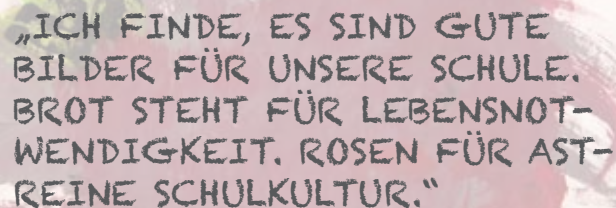 „ICH FINDE, ES SIND GUTE
BILDER FÜR UNSERE SCHULE.
BROT STEHT FÜR LEBENSNOT-
WENDIGKEIT. ROSEN FÜR AST-
REINE SCHULKULTUR.“